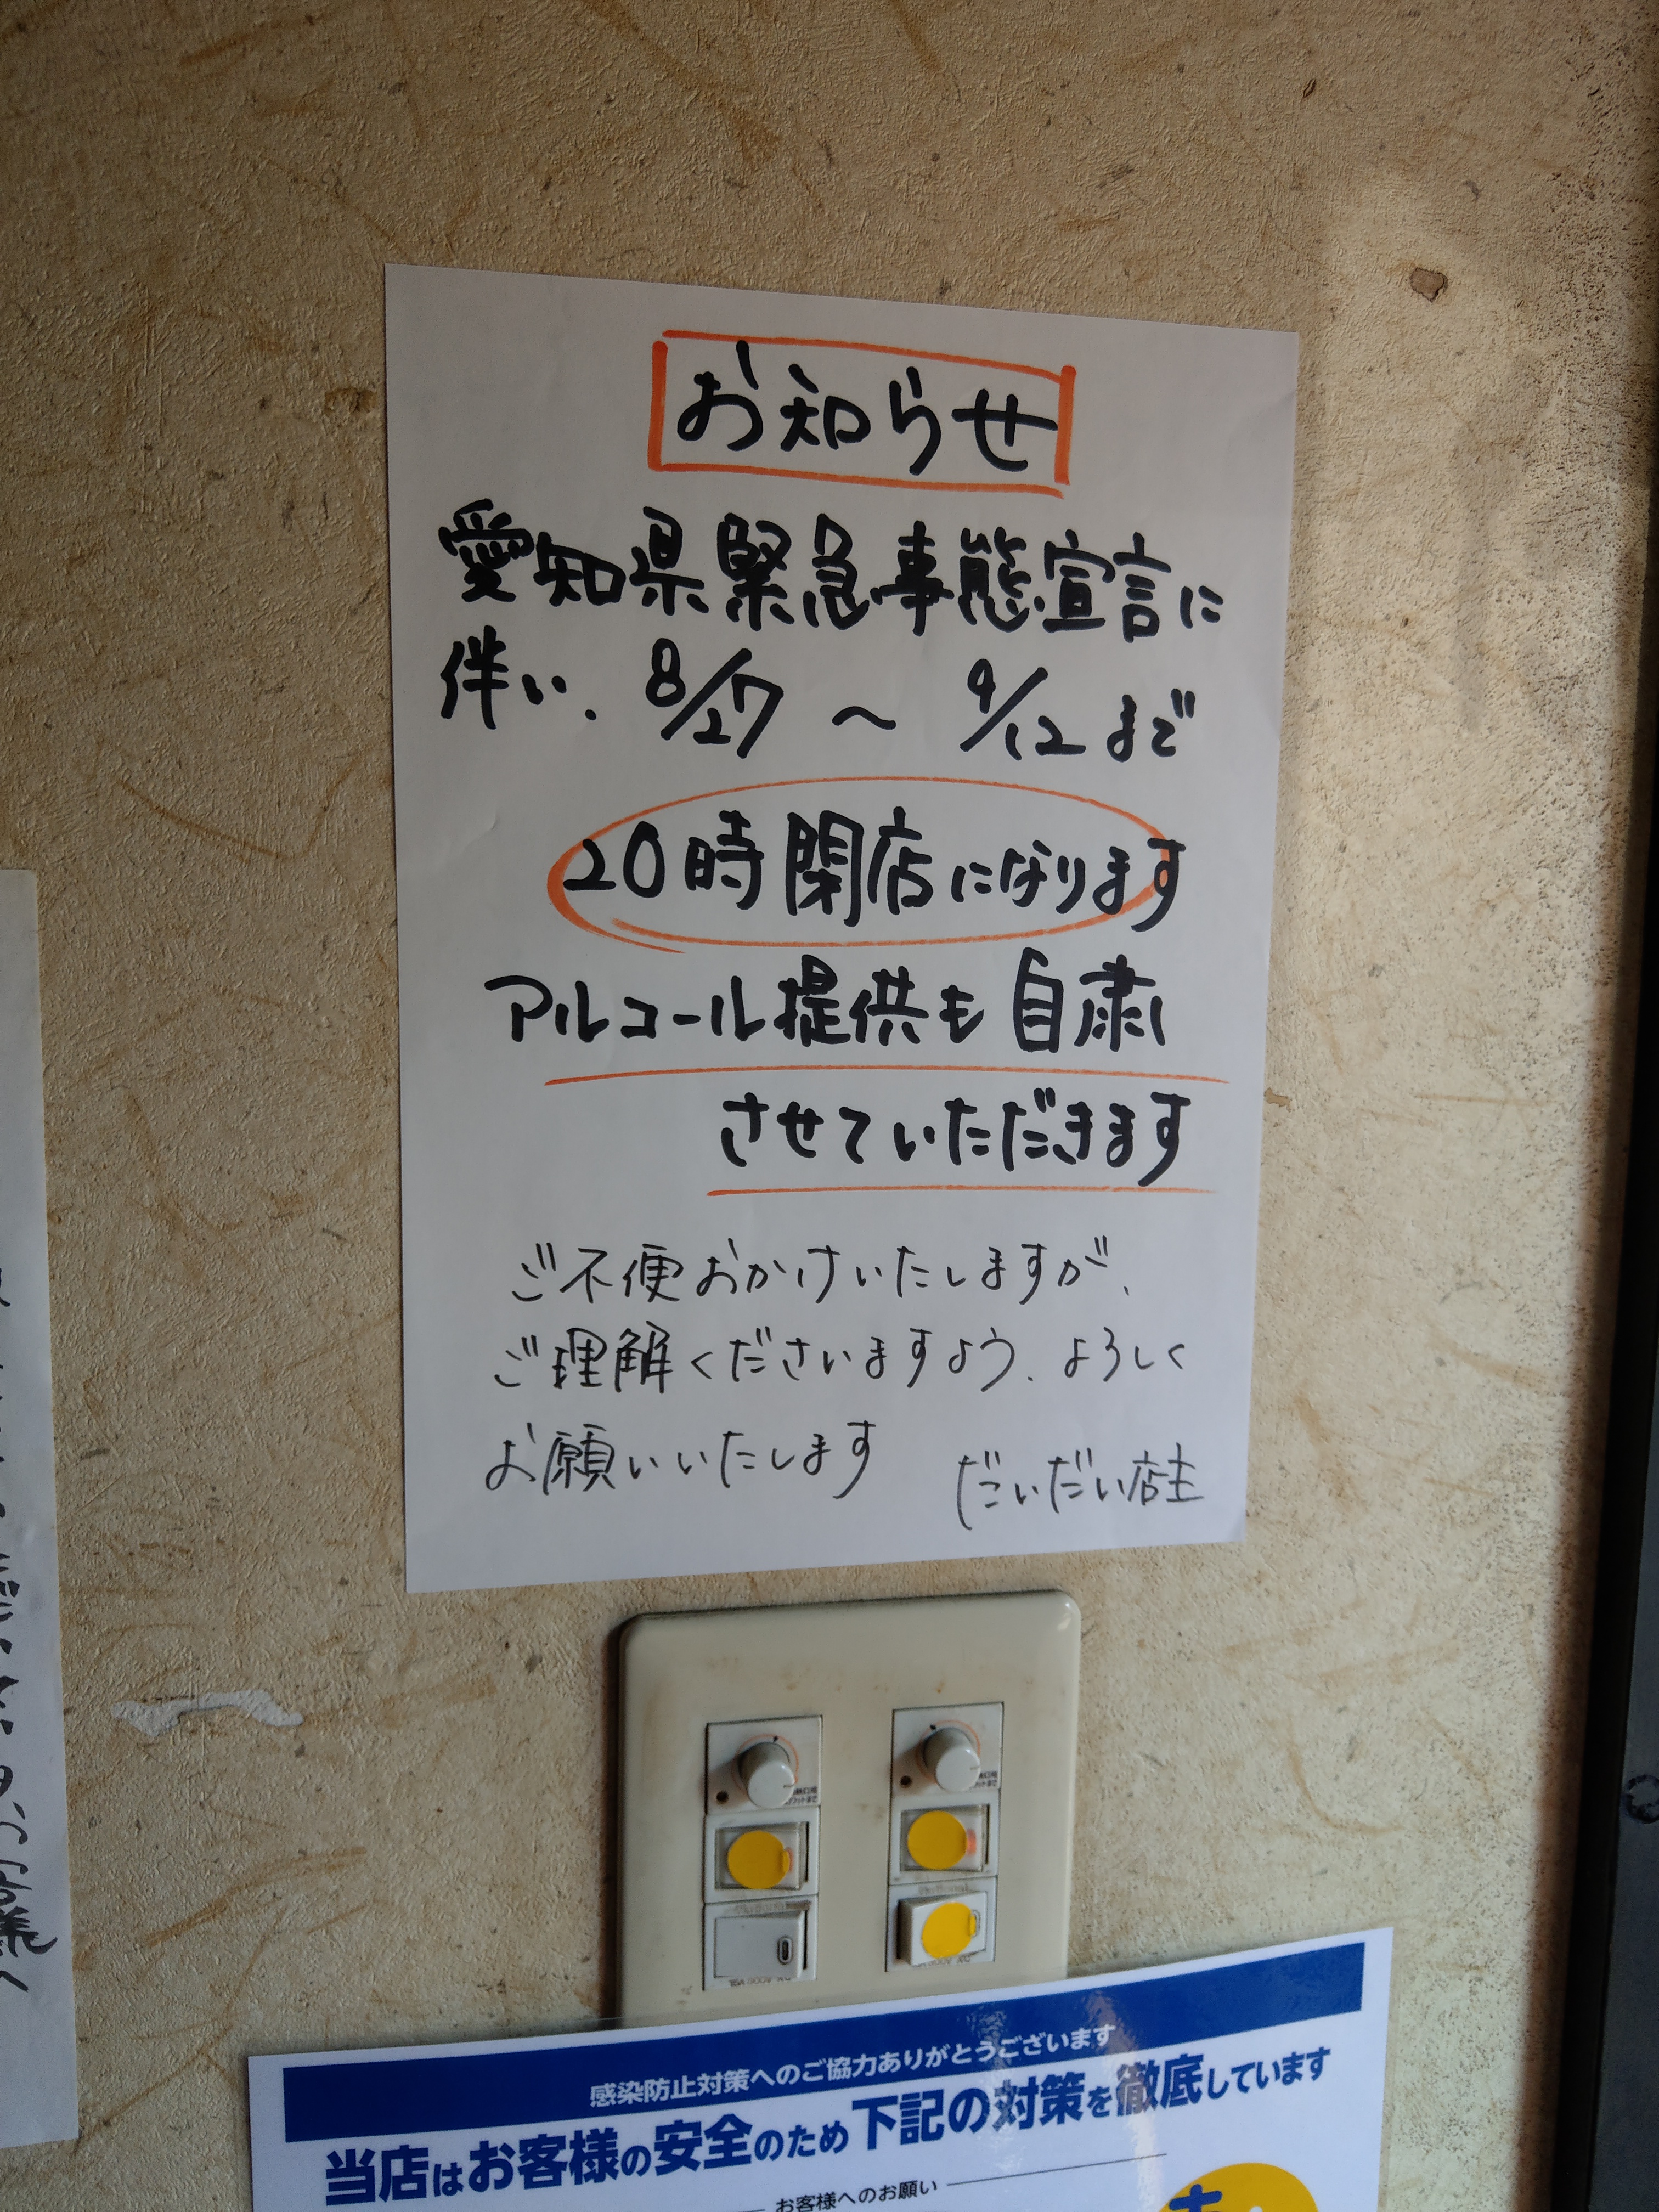 お知らせ
愛知県緊急事態宣言に
伴い、8/27 〜 9/12 まで
20時閉店になります
アルコール提供も自粛
させていただきます
ご不便おかけいたしますが、
ご理解くださいますよう、よろしく
お願いいたします
だいだい店主
感染防止対策へのご協力ありがとうございます
当店はお客様の安全のため下記の対策を徹底しています
お客様へのお願い